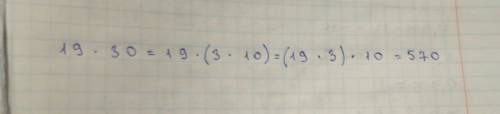 19 · 30 = 19 · (3 · 10) = (19 · 3) · 10 = 570